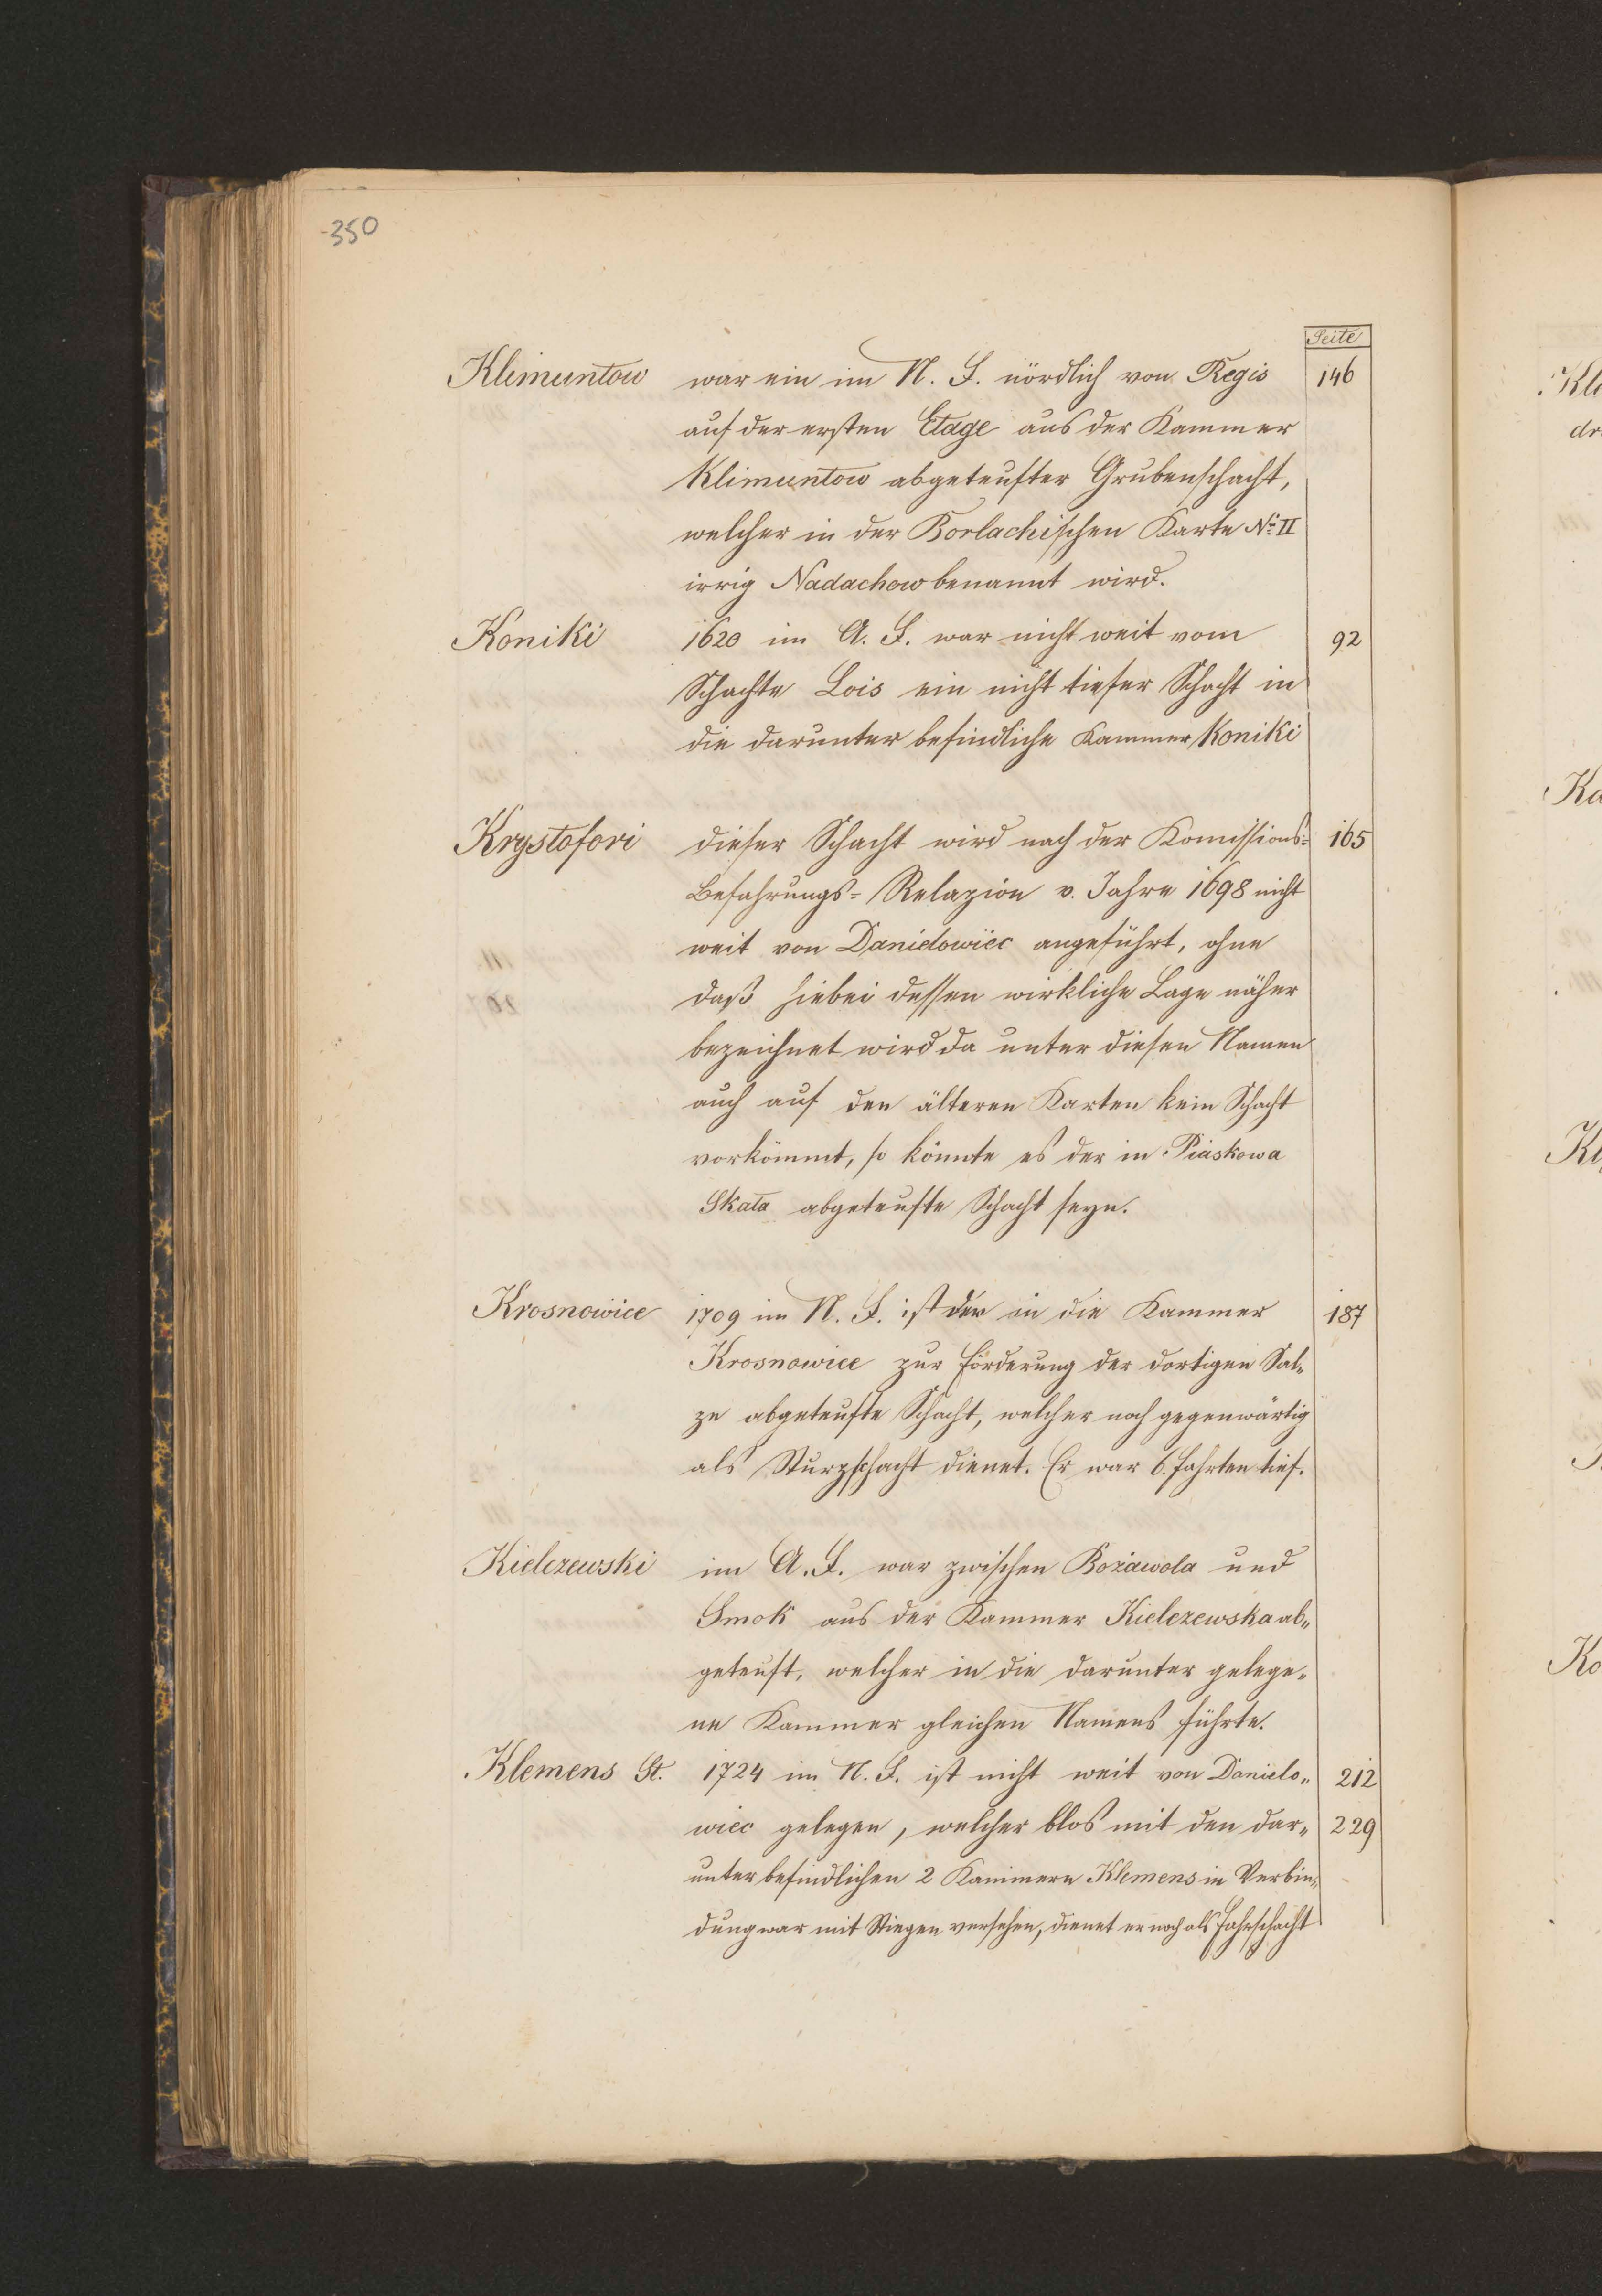 350
Seite
Klimuntow war ein im N. F. nördlich von Regis 146
auf der ersten Etage aus der Kammer
Klimuntow abgeteufter Grubenschacht,
welcher in der Borlachischen Karte No II
irrig Nadachow benannt wird.
Koniki 1620 im A. F. war nicht weit vom 92
Schachte Lois ein nicht tiefer Schacht in
die darunter befindliche Kammer Koniki
Krystofori dieser Schacht wird nach der Komissions= 165
Befahrungs= Relazion v. Jahre 1698 nicht
weit von Daniełowiec angeführt, ohne
daß hiebei dessen wirkliche Lage näher
bezeichnet wird da unter diesen Namen
auch auf den älteren Karten kein Schacht
vorkömmt, so könnte es der in Piaskowa
Skała abgeteufte Schacht seyn.
Krosnowice 1709 im N. F. ist der in die Kammer 187
Krosnowice zur Förderung der dortigen Sal„
ze abgeteufte Schacht, welcher noch gegenwärtig
als Sturzschacht dienet. Er war 6. Fahrten tief.
Kielczewski im A. F. war zwischen Bożawola und
Smok aus der Kammer Kielczewska ab„
geteuft, welcher in die darunter gelege„
ne Kammer gleichen Namens führte.
Klemens St. 1724 im N. F. ist nicht weit von Danielo„ 212
wiec gelegen, welcher blos mit den dar„ 229
unter befindlichen 2 Kammern Klemens in Verbin„
dung war mit Stiegen versehen, dienet er noch als Fahrschacht
Kl
dr
Ka
Kl
Ko